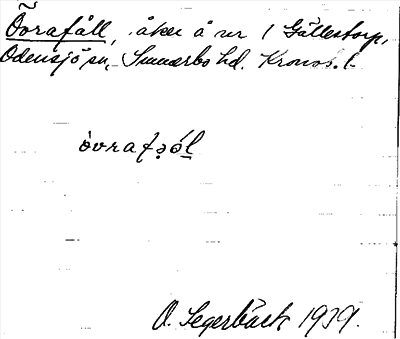 Övrafåll, åker å nr 1 Gällestorp,
Odensjö sn, Sunnerbo hd. Kronob. l.
òvrafə̣ól
O. Segerbäck 1939.